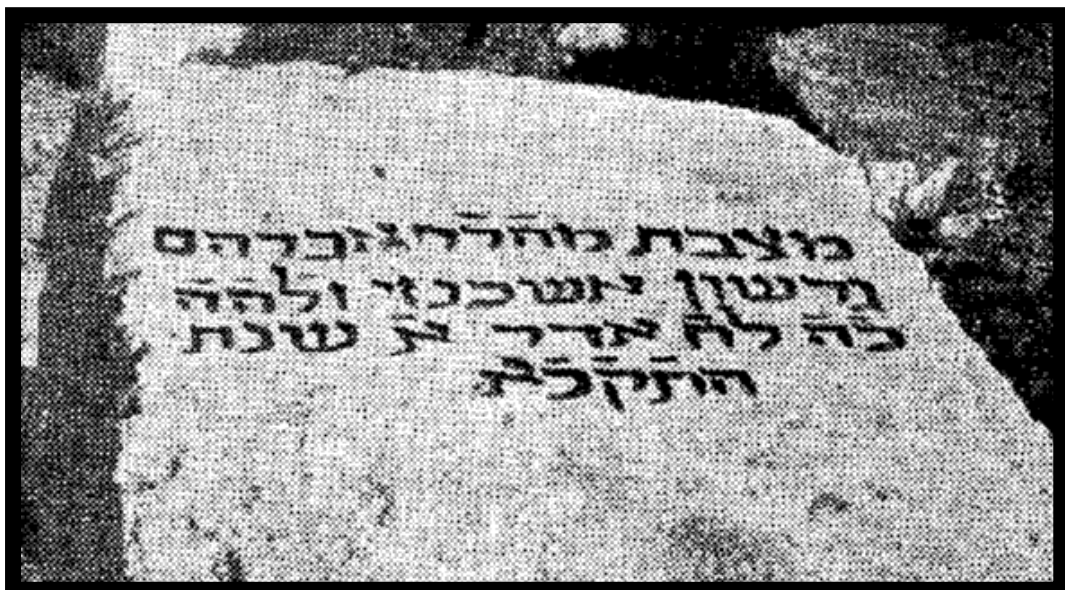 מצבת מהר̄ר̄ אברהם
גרשון אשכנזי זלהה
כה לח אדר א שנת
התקכא